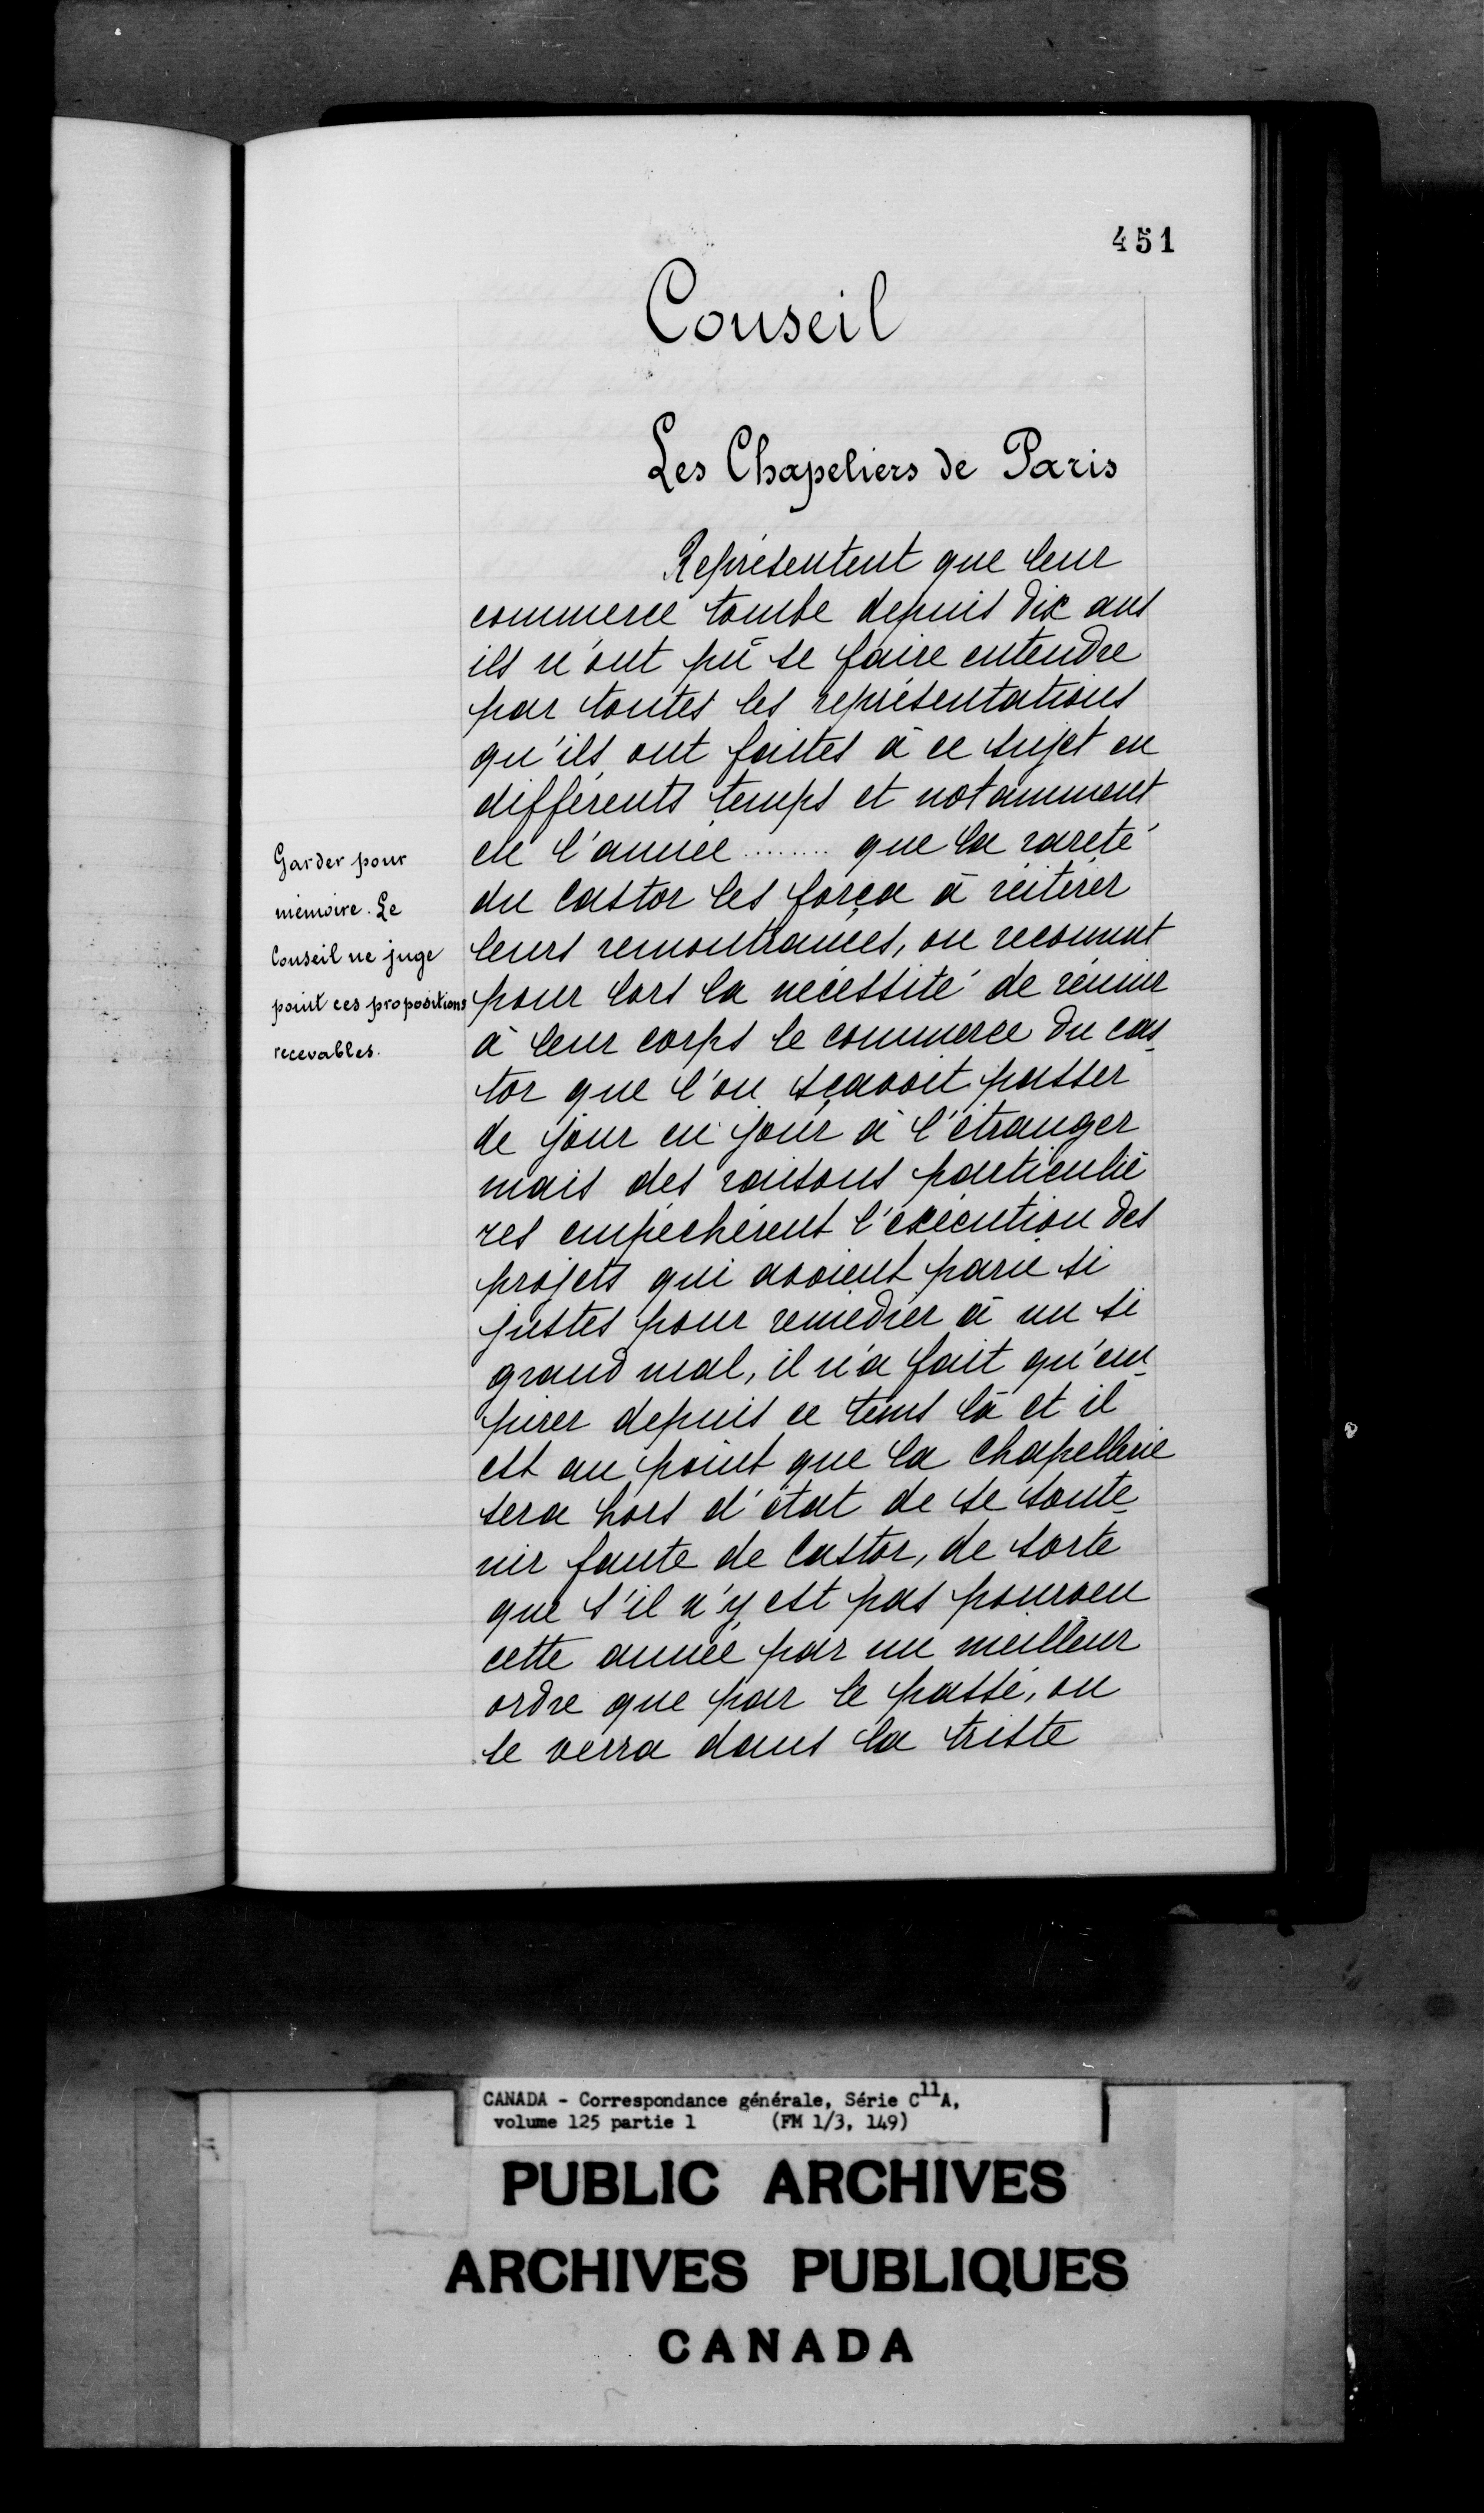 451
Conseil
Les Chapeliers de Paris
Représentent que leur
commerce tombe depuis dix ans
ils n'ont pû se faire entendre
par toutes les représentations
qu'ils ont faites à ce sujet en
différents temps et notamment
en l'année ........ que la rareté
du Castor les força à réitérer
leurs remontrances, on reconnut
pour lors la nécessité de réunir
à leur corps le commerce du cas-
tor que l'on sçavoit passer
de jour en jour à l'étranger
mais des raisons particuliè
res empêchèrent l'exécution des
projets qui avoient paru si
justes pour remédier à un si
grand mal, il n'a fait qu'em-
pirer depuis ce tems là et il
est au point que la chapellerie
sera hors d'état de se soute-
nir faute de Castor, de sorte
que s'il n'y est pas pourveu
cette année par un meilleur
ordre que par le passé, on
le verra dans la triste
Garder pour
mémoire. Le
Conseil ne juge
point ces propositions
recevables.
CANADA - Correspondance générale, Série C11A,
volume 125 partie 1 (FM 1/3, 149)
PUBLIC ARCHIVES
ARCHIVES PUBLIQUES
CANADA